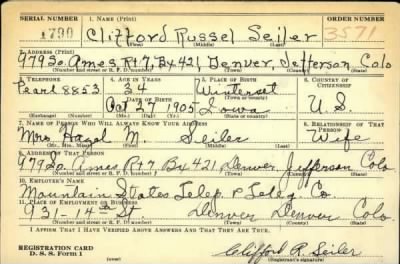 SERIAL NUMBER 1. NAME (Print) ORDER NUMBER
1790 Clifford Russel Seiler 3571
(First) (Middle) (Last)
2. ADDRESS (Print)
979 So. Ames Rt 7, Bx 421, Denver, Jefferson Colo
3. TELEPHONE 4. AGE IN YEARS 5. PLACE OF BIRTH 6. COUNTRY OF CITIZENSHIP
Pearl 8853 34 Winterset
DATE OF BIRTH (Town or county)
Oct 27 1905 Iowa U S
(Exchange) (Number) (Mo.) (Day) (Yr.) (State or country)
7. NAME OF PERSON WHO WILL ALWAYS KNOW YOUR ADDRESS 8. RELATIONSHIP OF THAT PERSON
Mrs. Hazel M. Seiler Wife
(Mr., Mrs., Miss) (First) (Middle) (Last)
9. ADDRESS OF THAT PERSON
979 So. Ames Rt 7, Bx 421, Denver, Jefferson Colo
(Number and street or R. F. D. number) (Town) (County) (State)
10. EMPLOYER'S NAME
Mountain States Telep. & Teleg. Co
11. PLACE OF EMPLOYMENT OR BUSINESS
931-14th St. Denver Denver Colo.
(Number and street or R. F. D. number) (Town) (County) (State)
I AFFIRM THAT I HAVE VERIFIED ABOVE ANSWERS AND THAT THEY ARE TRUE.
REGISTRATION CARD
D. S. S. Form 1 Clifford R. Seiler